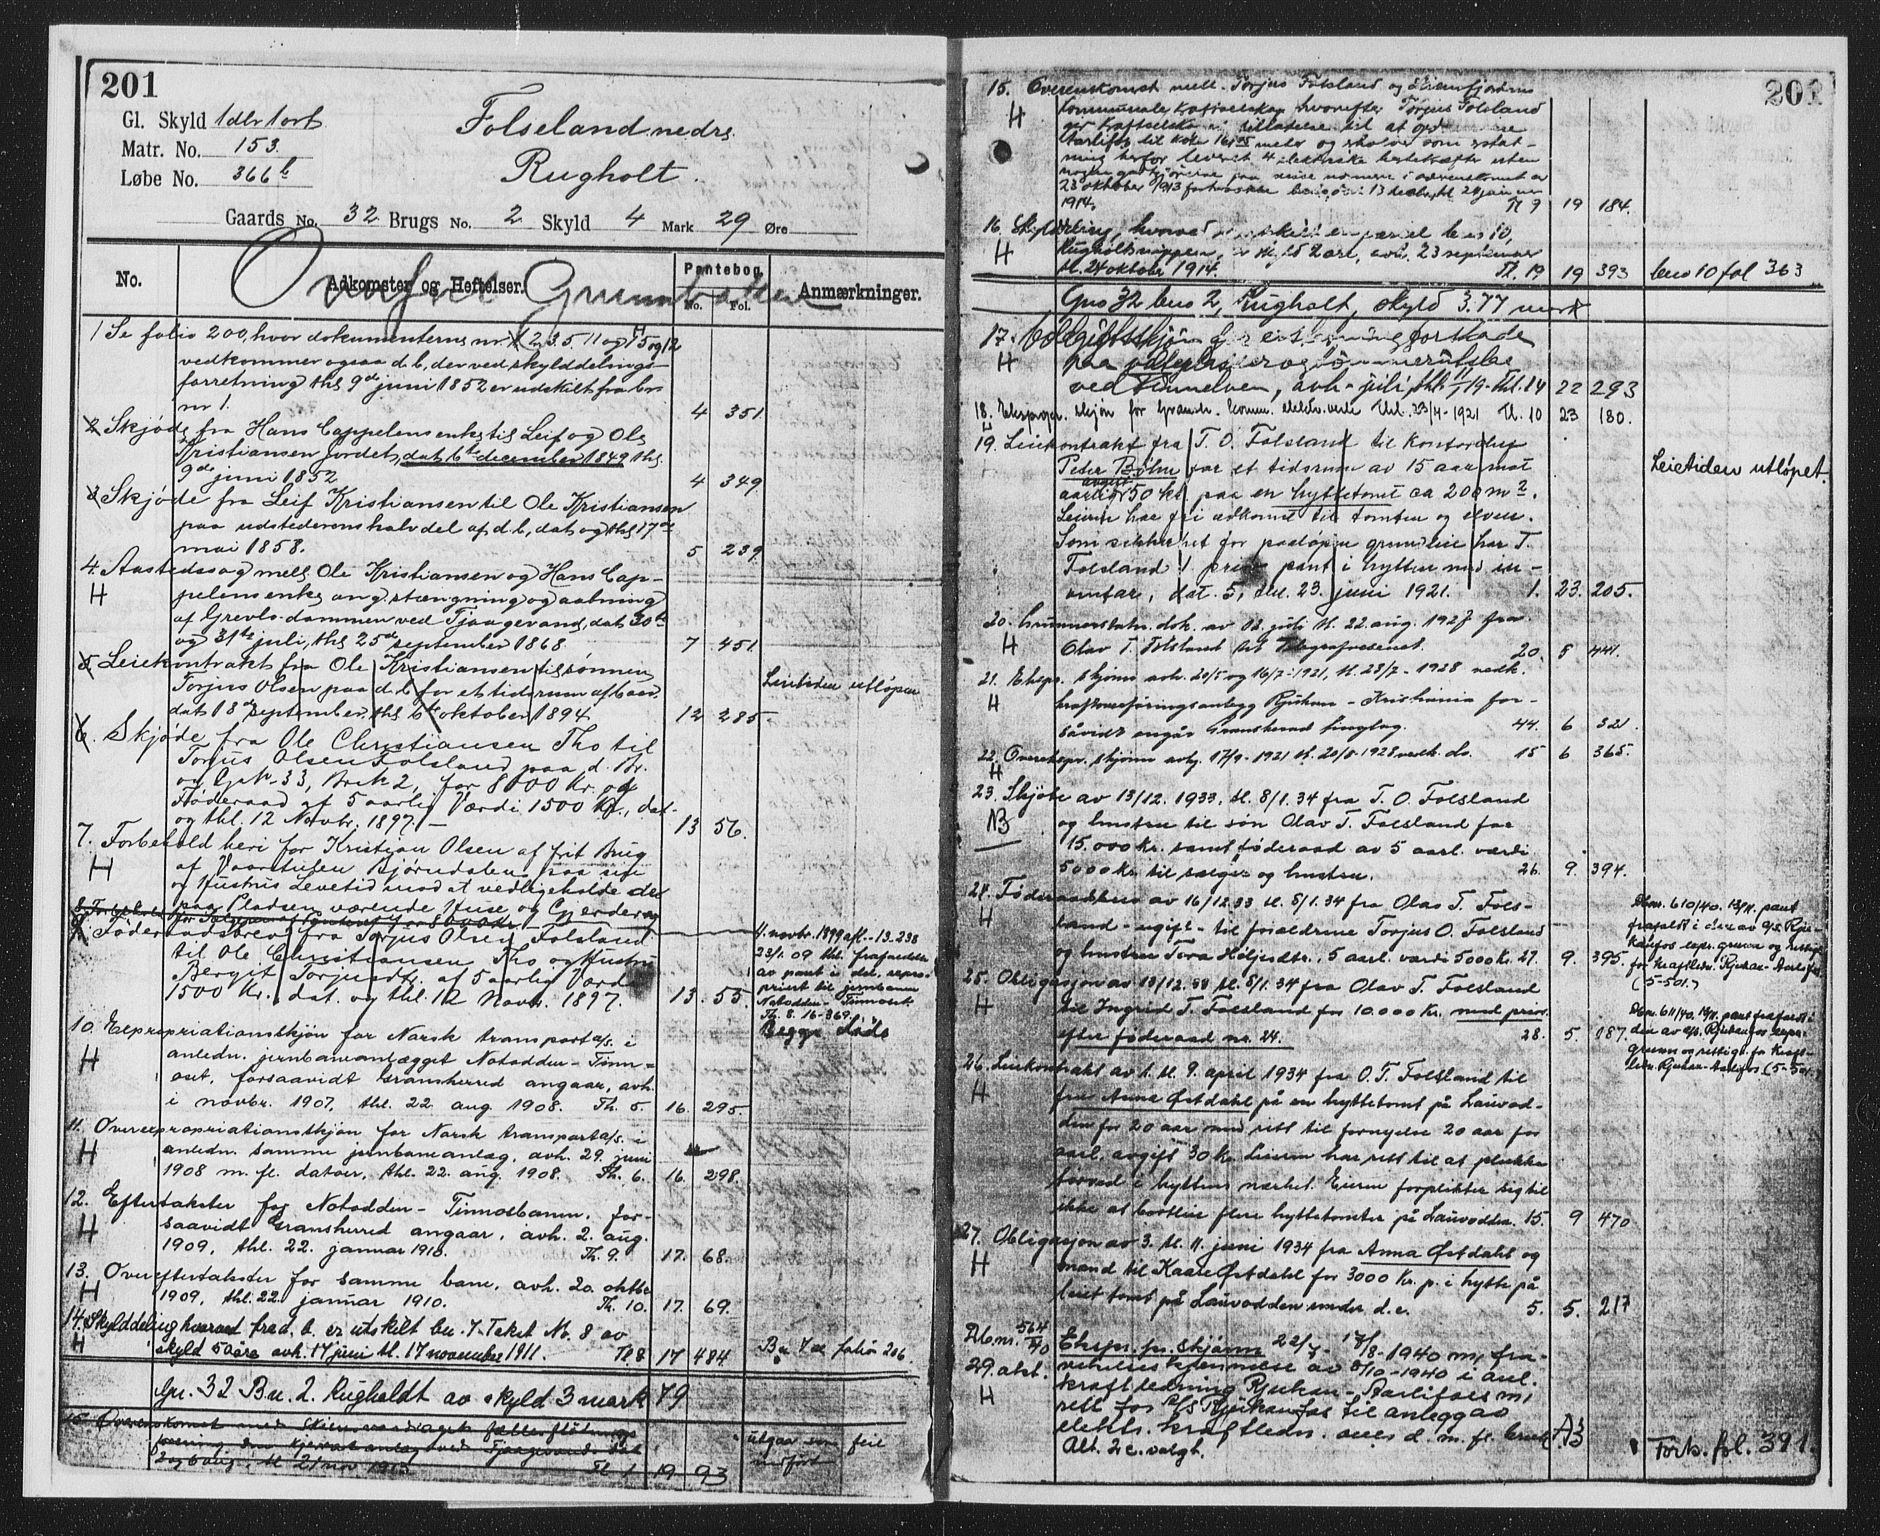 201
Gl. Skyld 1 dlr 1 ort
Matr. No. 153.
Løbe No. 366 b
Folseland nedre
Rugholt.
Gaards No. 32 Brugs No. 2 Skyld 4 Mark 29 Øre
No.
Adkomster og Heftelser.
Pantebog
No. Fol.
Anmærkninger.
Overført Grunnboken
1 Se folio 200, hvor dokumenterne nr. 1 2. 3. 5. 11 og 15 og 12
H
vedkommer ogsaa d. b, der ved skylddelings-
forretning thl. 9de juni 1852 er udskilt fra br.
nr 1. 4 351
2 Skjøde fra Hans Cappelens enke til Leif og Ole
Kristiansen Jordet, dat. 6te december 1849 thl.
9de juni 1852 4 349
3 Skjøde fra Leif Kristiansen til Ole Kristiansen
paa udstederens halvdel af d. b, dat og thl 17de
mai 1858. 5 239
4. Aastedssag mell. Ole Kristiansen og Hans Cap-
H pelens enke ang. stængning og aabning
af Grevlo dammen ved Tjaagevand, dat 30te
og 31te juli, thl 25de september 1868 7 451.
5. Leiekontrakt fra Ole Kristiansen til sønnen
Torjus Olsen paa d. b for et tidsrum af 6 aar.
dat 18de september, thl 6te oktober 1894 12 285
Leietiden utløpen
6. Skjøde fra Ole Christiansen Tho til
Torjus Olsen Folsland paa d. Br.
og Gr. 33, Br. 2, for 8000 Kr. og
Føderaad af 5 aarlig Værdi 1500 Kr., dat.
og thl. 12 Novbr. 1897. 13 56.
7. Forbehold heri for Kristian Olsen af frit Brug
H af Vaarstulen Bjørndalen paa sin
og Hustrus Levetid mod at vedligeholde de
paa Pladsen værende Huse og Gjerder
9. Føderaadsbrev fra Torjus Olsen Folsland
til Ole Christiansen Tho og Hustru
Bergit Torjusdtr. af 5 aarlig Værdi
1500 Kr., dat. og thl. 12 Novbr. 1897. 13. 55
11. novbr. 1899 afl. - 13-238
23/1. 09 thl. frafaldelse
av pant i det expro-
priert til jernbanen
Notodden - Tinnoset
Th. 8. 16-369.
Begge døde
10. Expropriationsskjøn for Norsk transporta/s. i
H anledn. jernbaneanlægget Notodden - Tinn-
oset, forsaavidt Gransherred angaar, avh.
i novbr. 1907, thl. 22. aug. 1908. Th. 5. 16. 295.
11. Overexpropriationsskjøn for Norsk transporta/s. i
H anledn. samme jernbaneanlæg, avh. 29. juni
1908 m. fl. datoer, thl. 22. aug. 1908. Th. 6. 16. 298.
12. Eftertakster for Notodden - Tinnosbanen, for-
H saavidt Gransherred angaar, avh. 2. aug.
1909, thl. 22. januar 1910. Th. 9. 17. 68.
13. Overeftertakster for samme bane, avh. 20. oktbr
H 1909, thl. 22. januar 1910. Th. 10. 17. 69.
14. Skylddeling hvorved fra d. b. er utskilt bn. 7. Takst No. 8 av
H skyld 5 øre avh. 17 juni tl. 17 november 1911. Tl 8 17 484
Bn 7 se folio 206.
Gn. 32 Bn. 2. Rugholdt av skyld 3 mark 79
15 Overenskomst med Skiensvasdragets fællesfløtnings
forening ved Tjaagevand
tl. 21 nov 1913 Tl 1 19 93
utgaar som feil
indført
201
15. Overenskomst mell. Torjus Folsland og Skiensfjordens
H kommunale kraftselskap hvorefter Torjus Folsland
gir kraftselskapet tillatelse til at
Aarlifos til kote meter og skal som erstat-
ning herfor leveret 4 elektriske hestekræfter uten
23 oktober 1913 24 januar
1914. Tl 9 19 184.
16. Skylddeling, hvorved er utskilt en parcel bn 10,
H Rugholtsnuppen, av skyld 2 øre, avh. 23 september
tl. 24 oktober 1914. Tl. 19 19 393 bno 10 fol 363
Gno 32 bno 2, Rugholt, skyld 3.77 mark
17.
H
ved Tinnelven, avh. juli, thl. Thl. 14 22 293
18. Ekspropr. skjøn for Gransh. komm. elektr. verk Thl. 23/4-1921 Tl. 10 23 180.
19. Leiekontrakt fra T. O. Folsland til kontorchef
Peder Bøhn for et tidsrum av 15 aar mot
avgift
aarlig 50 kr. paa en hyttetomt ca 200 m2.
Leieren har fri adkomst til tomten og elven.
Som sikkerhet for paaløpen grundleie har T.
Folsland 1. prior. pant i hytten med in-
omfar, dat. 5, thl. 23. juni 1921. 1. 23. 205.
Leietiden utløpet.
20. tl. 22 aug. 1927 fra
H Olav T. Folsland til Telegrafvesenet. 20. 5 441.
21. Eksp. skjønn avh. 20/5 og 16/7-1921, tl. 28/7-1928 vedk.
H kraftoverføringsanlegg Rjukan - Kristiania for-
såvidt angår Gransherad tinglag. 44. 6 321
22. Overekspr. skjønn avh. 17/9.1921 tl. 20/8-1928 vedk. do. 15 6 365.
H
23. Skjøte av 13/12. 1933, tl. 8/1.34 fra T. O. Folsland
NB og hustru til søn Olav T. Folsland for
15.000 kr. samt føderaad av 5 aarl. værdi
5000 kr. til sælger og hustru. 26. 9. 394.
24. Føderaadsbrev av 16/12.33 tl. 8/1.34 fra Olav T. Fols-
H land - ugift - til foreldrene Torjus O. Folsland
og hustru Tora Høljesdtr., 5 aarl. verdi 5000 kr. 27. 9. 395.
Dbnr. 610/40. pant
frafalt i den av a/s. Rju-
kanfos expr. grunn og rettigh.
for kraftledn. Rjukan - Aarlifos
(5-501.)
25. Obligasjon av 13/12.33 tl. 8/1.34 fra Olav T. Folsland
H til Ingrid T. Folsland for 10.000 kr. med prior.
efter føderaad nr. 24. 28. 5. 187.
Dbnr. 611/40. pant frafalt i
den av a/s. Rjukanfos expr.
grunn og rettigh. for kraft-
ledn. Rjukan - Aarlifos (5-501.)
26. Leiekontrakt av 1. tl. 9. april 1934 fra O. T. Folsland til
H fru Anna Østdahl på en hyttetomt på Lauvod-
den for 20 aar med rett til fornyelse 20 aar for
aarl. avgift 30 kr. Leieren har rett til at plukke
tørved i hyttens nærhet. Eieren forplikter sig til
ikke at bortleie flere hyttetomter på Lauvodden. 15. 9 470
27. Obligasjon av 3. tl. 11. juni 1934 fra Anna Østdahl og
H mand til Kaare Østdahl for 3000 Kr. p. i hytte på
leiet tomt på Lauvodden under d. e. 5. 5. 217
Dbnr. 564/40 Eksp. pr. skjønn 22/7 - 17/8-1940 m. fra-
29. okt. vikelseskjennelse av 8/10-1940 i anl.
H kraftledning Rjukan - Aarlifoss m.
rett for A/S Rjukanfos til anlegg av
elektr. kraftledn. over d. m. fl. bruk A3
Alt. 2 c. valgt.
Forts. fol. 391.